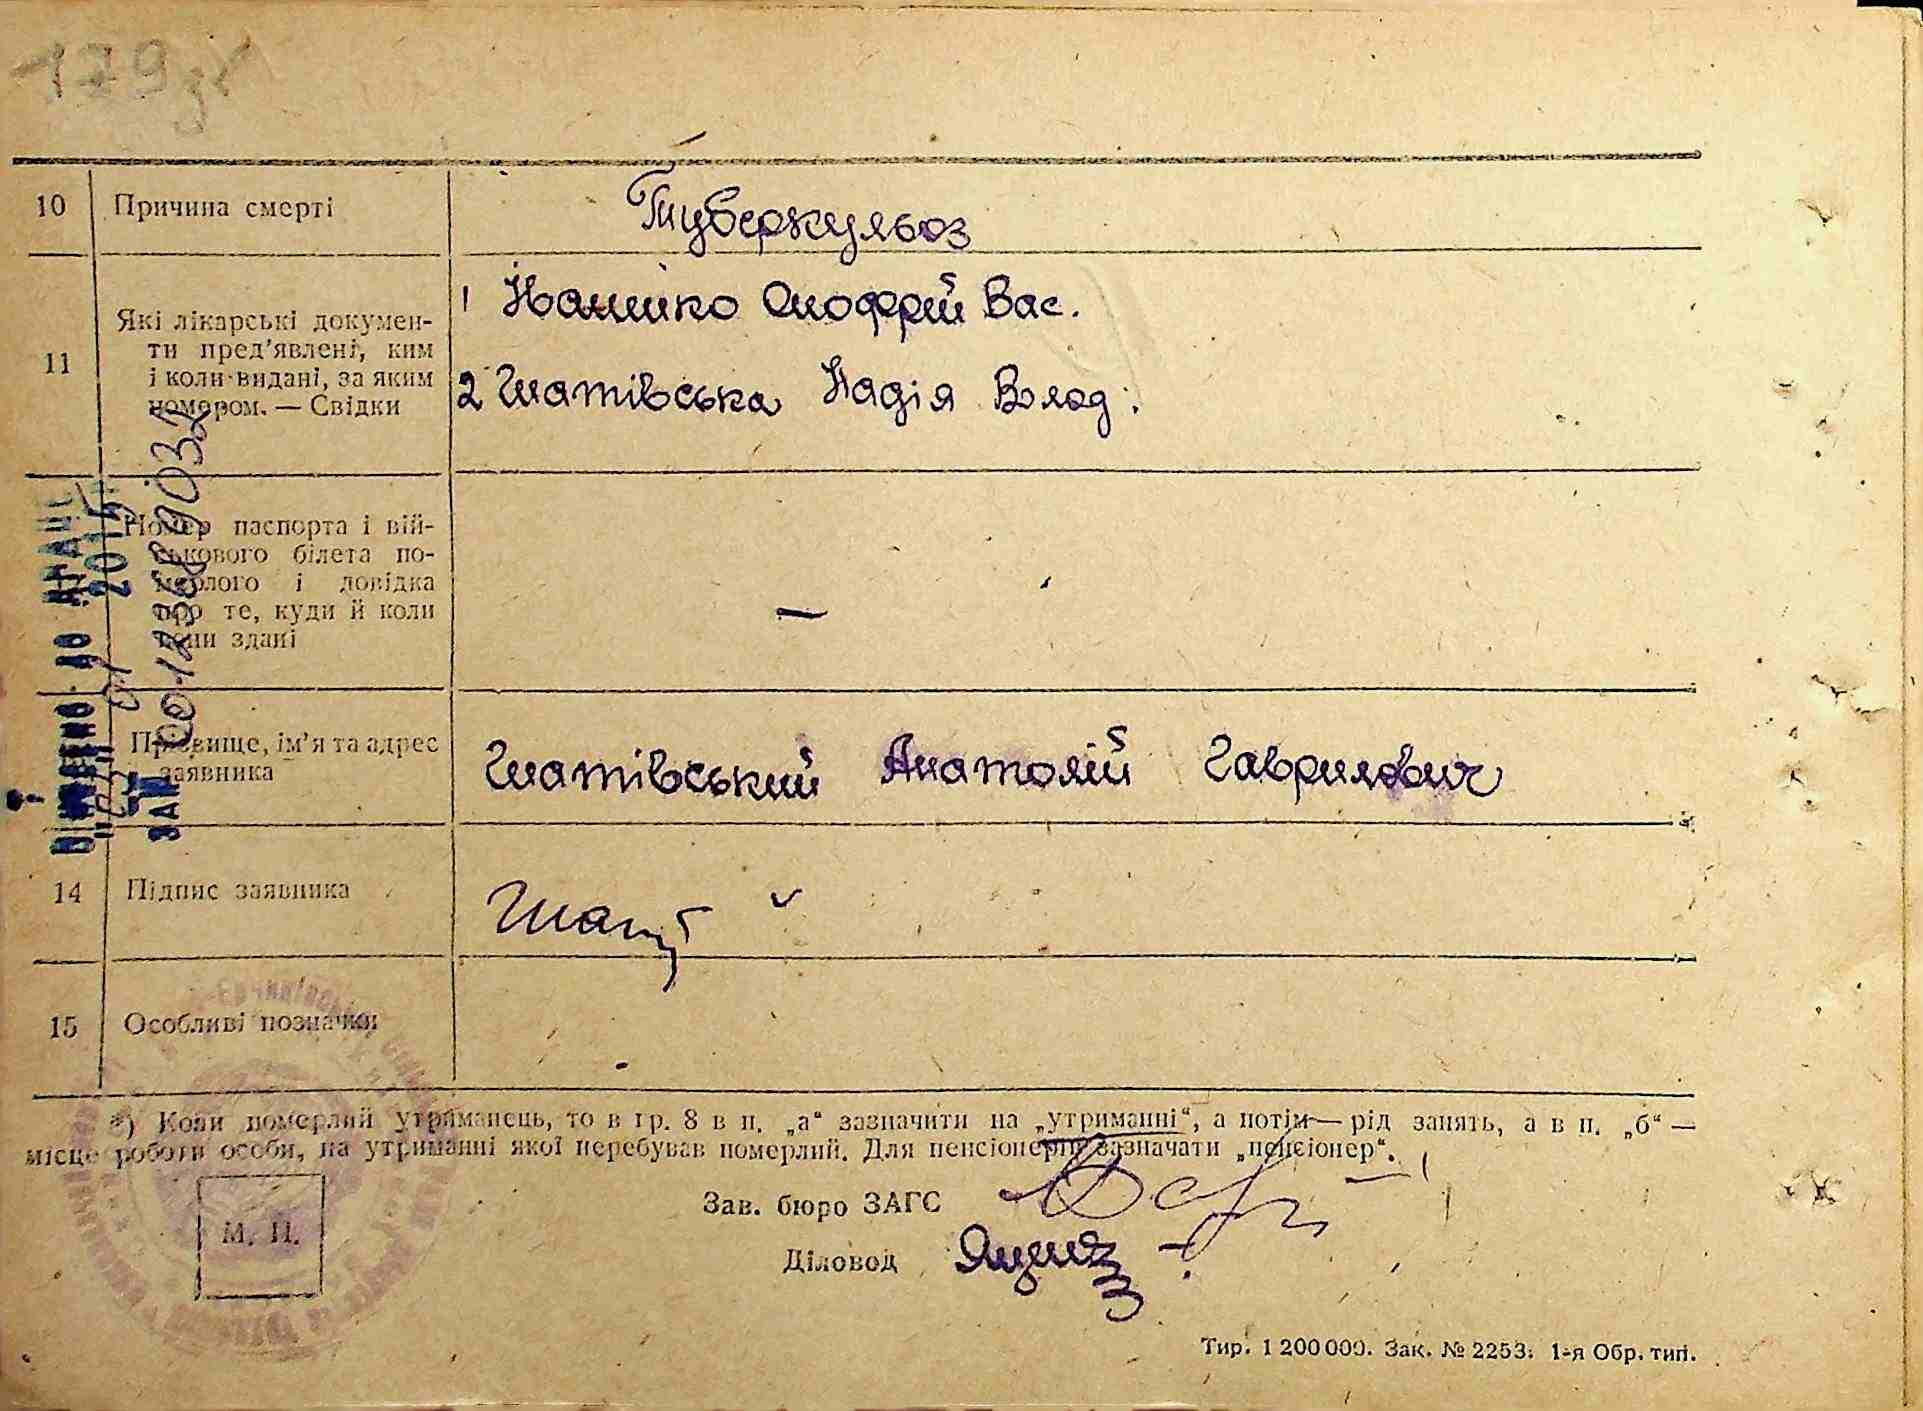 179
10 Причина смерті Туберкульоз
11 Які лікарські докумен-
ти пред'явлені, ким
і коли видані, за яким
номером. — Свідки
1 Онофрій Вас.
2 Гнатівська Надія Влад.
Номер паспорта і вій-
ськового білета по-
мерлого і довідка
про те, куди й коли
вони здані
—
Прізвище, ім'я та адрес
заявника
Гнатівський Анатолій Гаврилович
14 Підпис заявника
15 Особливі позначки
*) Коли померлий утриманець, то в гр. 8 в п. „а“ зазначити на „утриманні“, а потім — рід занять, а в п. „б“ —
місце роботи особи, на утриманні якої перебував померлий. Для пенсіонерів зазначати „пенсіонер“.
Зав. бюро ЗАГС
Діловод
М. П.
Тир. 1 200 000. Зак. № 2253. 1-я Обр. тип.
ВНЕСЕНО ДО ДРАЦС
2015